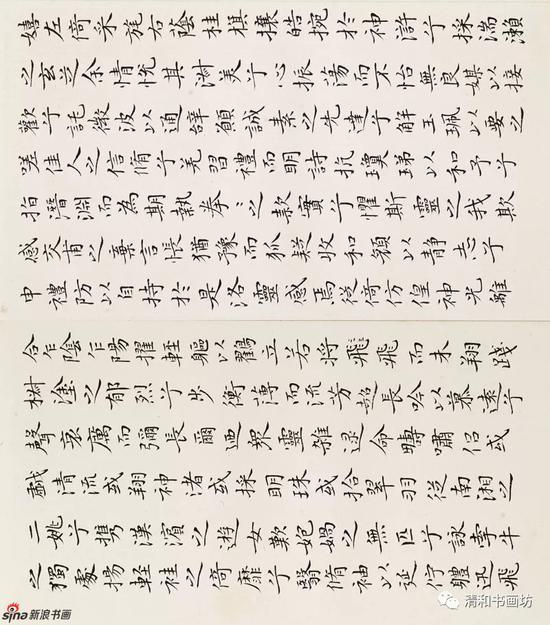 嬉左倚采旄右蔭桂棋攘皓捥於神滸兮採湍瀨
之玄芝余情悅其淑美兮心振蕩而不怡無良媒以接
歡兮託微波以通辭願誠素之先達兮解玉珮以要之
嗟佳人之信脩兮羌習禮而明詩抗瓊珶以和予兮
指潛淵而為期執拳〻之款實兮懼斯靈之我欺
感交甫之棄言悵猶豫而狐疑收和顏以靜志兮
申禮防以自持於是洛靈感焉徙倚仿偟神光離
合乍陰乍陽擢輕軀以鶴立若將飛飛而未翔踐
椒塗之郁烈兮步衡薄而流芳超長吟以慕遠兮
聲哀厲而彌長爾迺衆靈雜遝命疇嘯侶或
戲清流或翔神渚或採明珠或拾翠羽從南湘之
二姚兮携漢濱之遊女歎妃媧之無匹兮詠牽牛
之獨處揚輕袿之倚靡兮翳脩袖以延佇體迅飛
sina新浪书画
清和书画坊